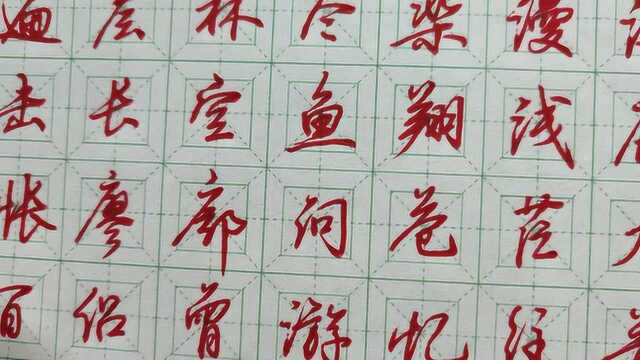 遍层林尽染漫
击长空鱼翔浅底
怅廖廓问苍茫大
百侣曾游忆往